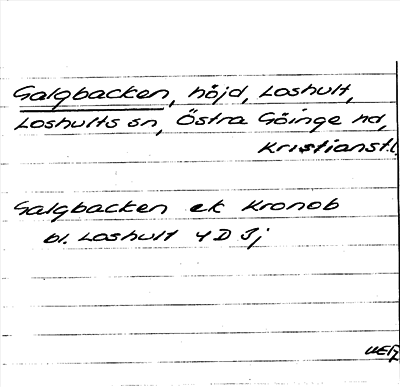 Galgbacken, höjd, Loshult,
Loshults sn, Östra Göinge hd,
Kristianst.l.
Galgbacken ek Kronob
bl. Loshult 4D 3j